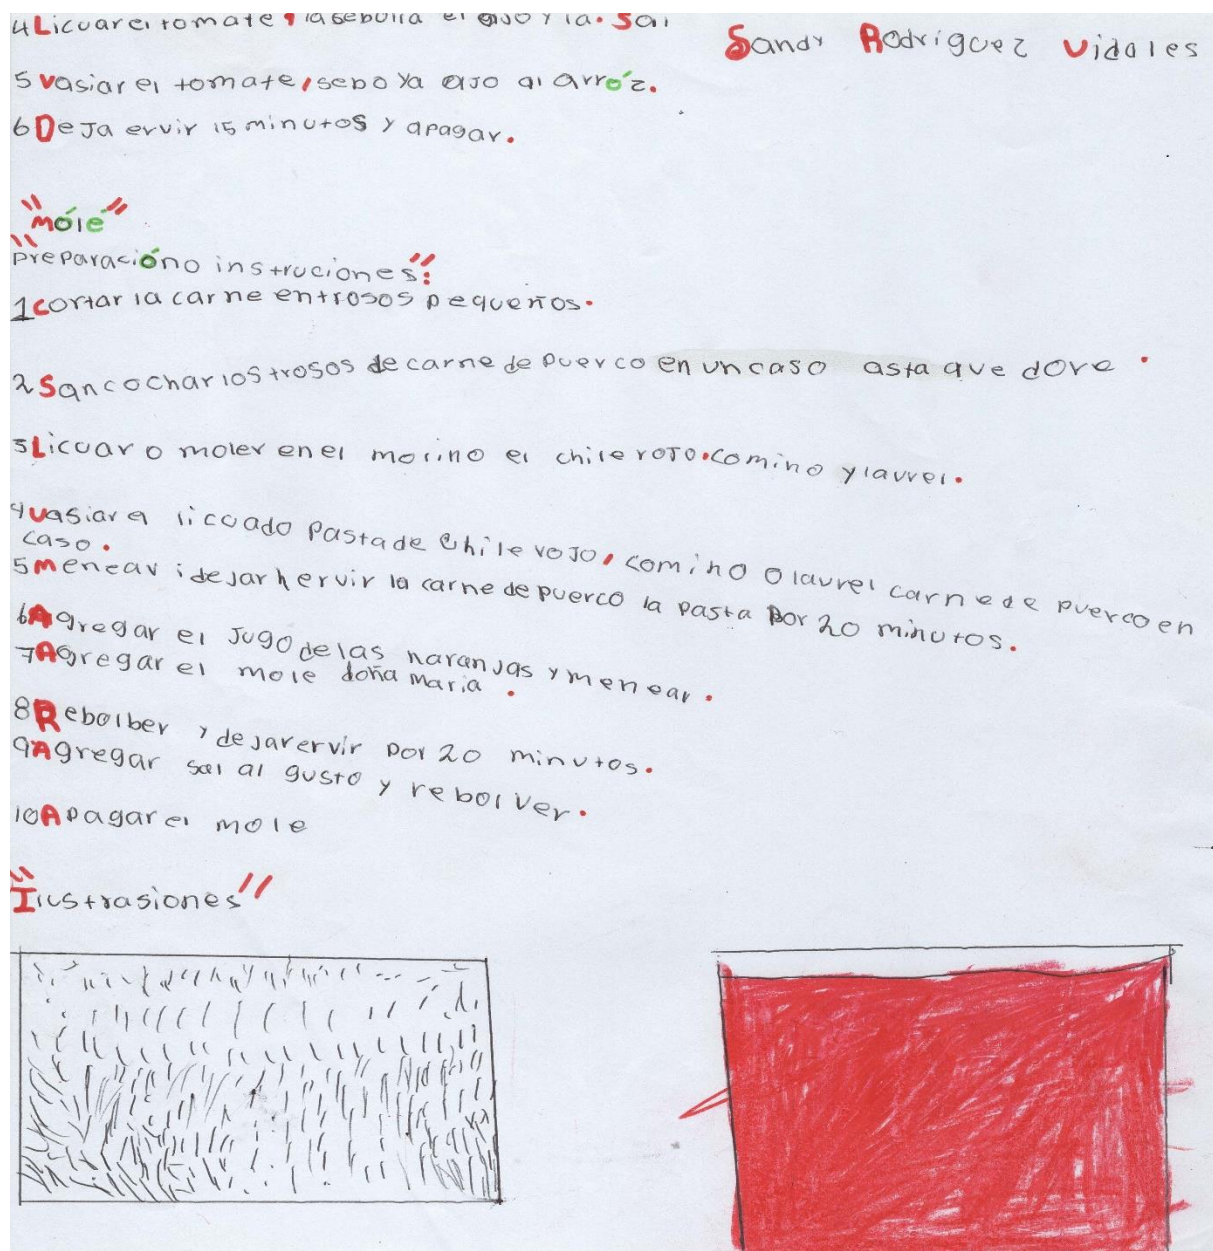 4 Licuar el tomate, la sebolla el ajo y la. Sal
Sandy Rodriguez Vidales
5 vasiar el tomate, seboya ajo al arróz.
6 Deja ervir 15 minutos y apagar.
"móle"
"preparacióno instruciones":
1 cortar la carne entrosos pequeños.
2 Sancochar los trosos de carne de puerco en un caso asta que dore.
3 Licuar o moler en el molino el chile rojo. comino y laurel.
4 vasiar el licuado pasta de chile rojo, comino o laurel carne de puerco en
caso.
5 menear i dejar hervir la carne de puerco la pasta por 20 minutos.
6 Agregar el jugo de las naranjas y menear.
7 Agregar el mole doña maria.
8 Rebolber y dejar ervir por 20 minutos.
9 Agregar sal al gusto y rebolver.
10 Apagar el mole
"Ilustrasiones"